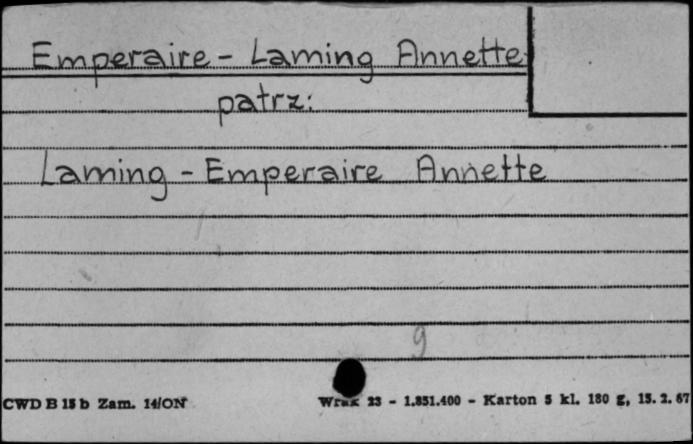 Emperaire - Laming Annette
patrz:
Laming - Emperaire Annette
9
CWD B 15 b Zam. 14/ON Wrak 23 - 1.851.400 - Karton 5 kl. 180 g, 15. 2. 67